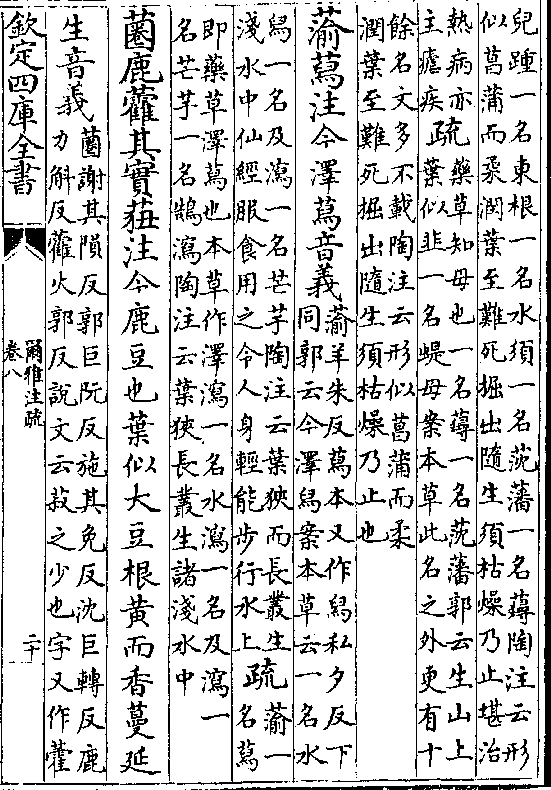 兒踵一名東根一名水須一名莐藩一名䕭陶注云形
似菖蒲而柔潤葉至難死掘出隨生須枯燥乃止堪治
熱病亦
主瘧疾
疏
藥草知母也一名䕭一名莐藩郭云生山上
葉似韭一名蝭母案本草此名之外更有十
餘名文多不載陶注云形似菖蒲而柔
潤葉至難死掘出隨生須枯燥乃止也
蕍蕮注今澤蕮音義
蕍羊朱反蕮本又作舄私夕反下
同郭云今澤舄案本草云一名水
舄一名及瀉一名芒芋陶注云葉狹而長叢生
淺水中仙經服食用之令人身輕能步行水上
疏
蕍一
名蕮
即藥草澤蕮也本草作澤瀉一名水瀉一名及瀉一
名芒芋一名鵠瀉陶注云葉狹長叢生諸淺水中
菌鹿藿其實莥注今鹿豆也葉似大豆根黃而香蔓延
生音義
菌謝其隕反郭巨阮反施其免反沈巨轉反鹿
力斛反藿火郭反說文云菽之少也字又作藿
欽定四庫全書
爾雅注疏
卷八
二十